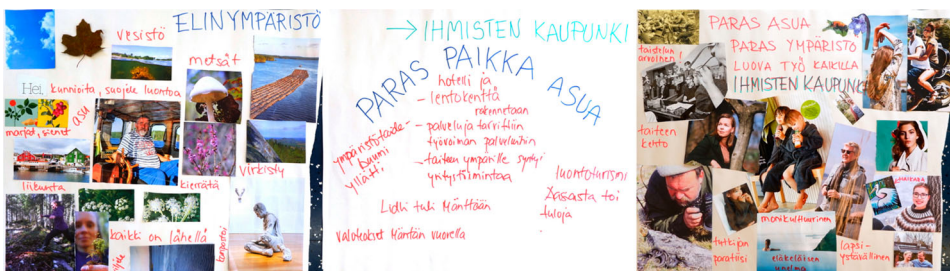 ELINYMPÄRISTÖ
vesistö
metsät
Hei, kunnioita, suojele luontoa
asu
marjat, sienet
virkisty
liikunta
kierrätä
kaikki on lähellä
→ IHMISTEN KAUPUNKI
PARAS PAIKKA ASUA
hotelli ja
- lentokenttä
rakennetaan
- palveluja tarvittiin
työvoiman palveluihin
- taiteen ympärille syntyi
yritystoimintaa
ympäristötaide-
buumi
yllätti
luontoturismi
Aasasta toi
tuloja
Lidli tuli Mänttään
valoteokset Mäntän vuorella
PARAS ASUA
PARAS YMPÄRISTÖ
LUOVA TYÖ KAIKILLA
IHMISTEN KAUPUNKI
taistelun
arvoinen!
taiteen
kehto
HAIKARA
monikulttuurinen
tutkijan
paratiisi
eläkeläisen
unelma
lapsi-
ystävällinen